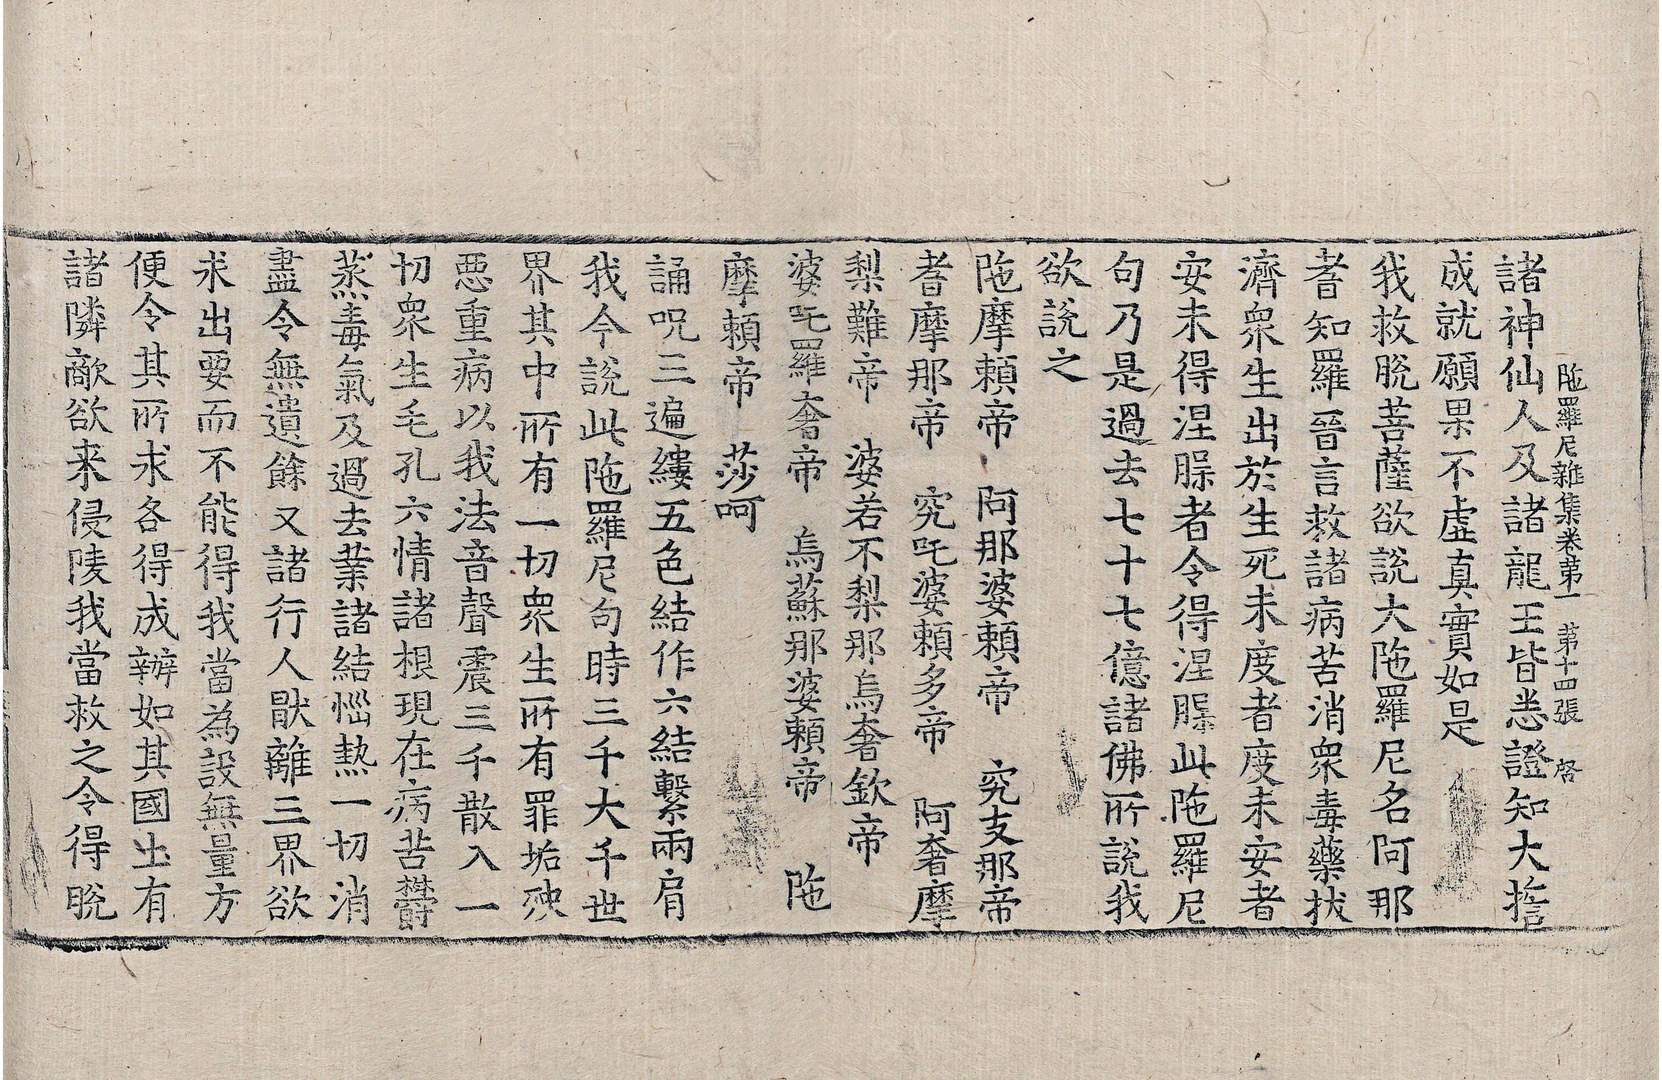 陁羅尼雜集卷第一 第十四張 啓
諸神仙人及諸龍王皆悉證知大擔
成就願果不虛真實如是
我救脫菩薩欲說大陁羅尼名阿那
耆知羅晉言救諸病苦消衆毒藥扶
濟衆生出於生死未度者度未安者
安未得涅縣者令得涅縣此陁羅尼
句乃是過去七十七億諸佛所說我
欲說之
陁摩賴帝 阿那婆賴帝 究支那帝
耆摩那帝 究吒婆賴多帝 阿奢摩
梨難帝 婆若不梨那烏奢欽帝
婆吒羅奢帝 烏蘇那婆賴帝 陁
摩賴帝 莎呵
誦呪三遍縷五色結作六結繫兩肩
我今說此陁羅尼句時三千大千世
界其中所有一切衆生所有罪垢殃
惡重病以我法音聲震三千散入一
切衆生毛孔六情諸根現在病苦欝
蒸毒氣及過去業諸結惱熱一切消
盡令無遺餘又諸行人厭離三界欲
求出要而不能得我當為設無量方
便令其所求各得成辦如其國土有
諸隣敵欲来侵陵我當救之令得脫